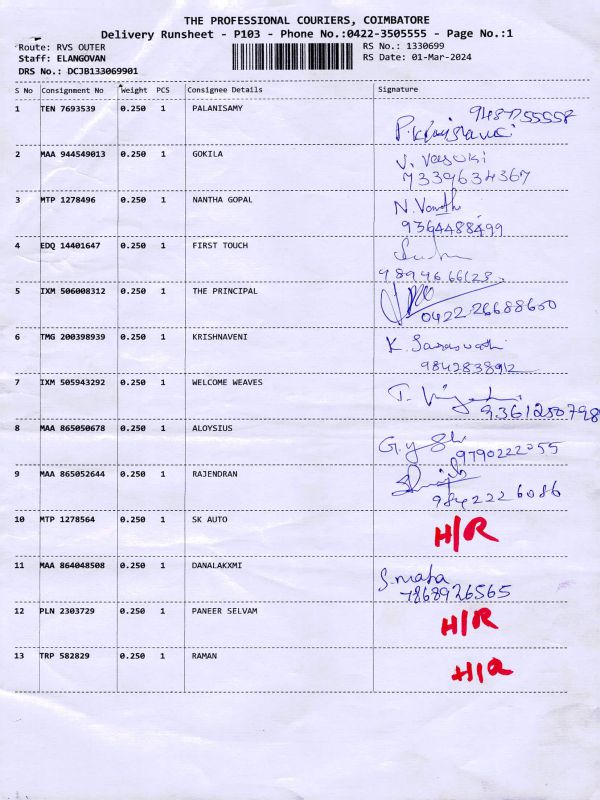 THE PROFESSIONAL COURIERS, COIMBATORE
Delivery Runsheet - P103 - Phone No.:0422-3505555 - Page No.:1
Route: RVS OUTER RS No.: 1330699
Staff: ELANGOVAN RS Date: 01-Mar-2024
DRS No.: DCJB133069901
S No Consignment No Weight PCS Consignee Details Signature
1 TEN 7693539 0.250 1 PALANISAMY
2 MAA 944549013 0.250 1 GOKILA V. Vasuki
7339634367
3 MTP 1278496 0.250 1 NANTHA GOPAL N. Vanathi
9364488499
4 EDQ 14401647 0.250 1 FIRST TOUCH
9894666128
5 IXM 506008312 0.250 1 THE PRINCIPAL
0422-26688600
6 TMG 200398939 0.250 1 KRISHNAVENI K. Saraswathi
9842838912
7 IXM 505943292 0.250 1 WELCOME WEAVES
9361250798
8 MAA 865050678 0.250 1 ALOYSIUS
9790222055
9 MAA 865052644 0.250 1 RAJENDRAN
9842226086
10 MTP 1278564 0.250 1 SK AUTO H/R
11 MAA 864048508 0.250 1 DANALAKXMI S.maha
7868926565
12 PLN 2303729 0.250 1 PANEER SELVAM H/R
13 TRP 582829 0.250 1 RAMAN H/R